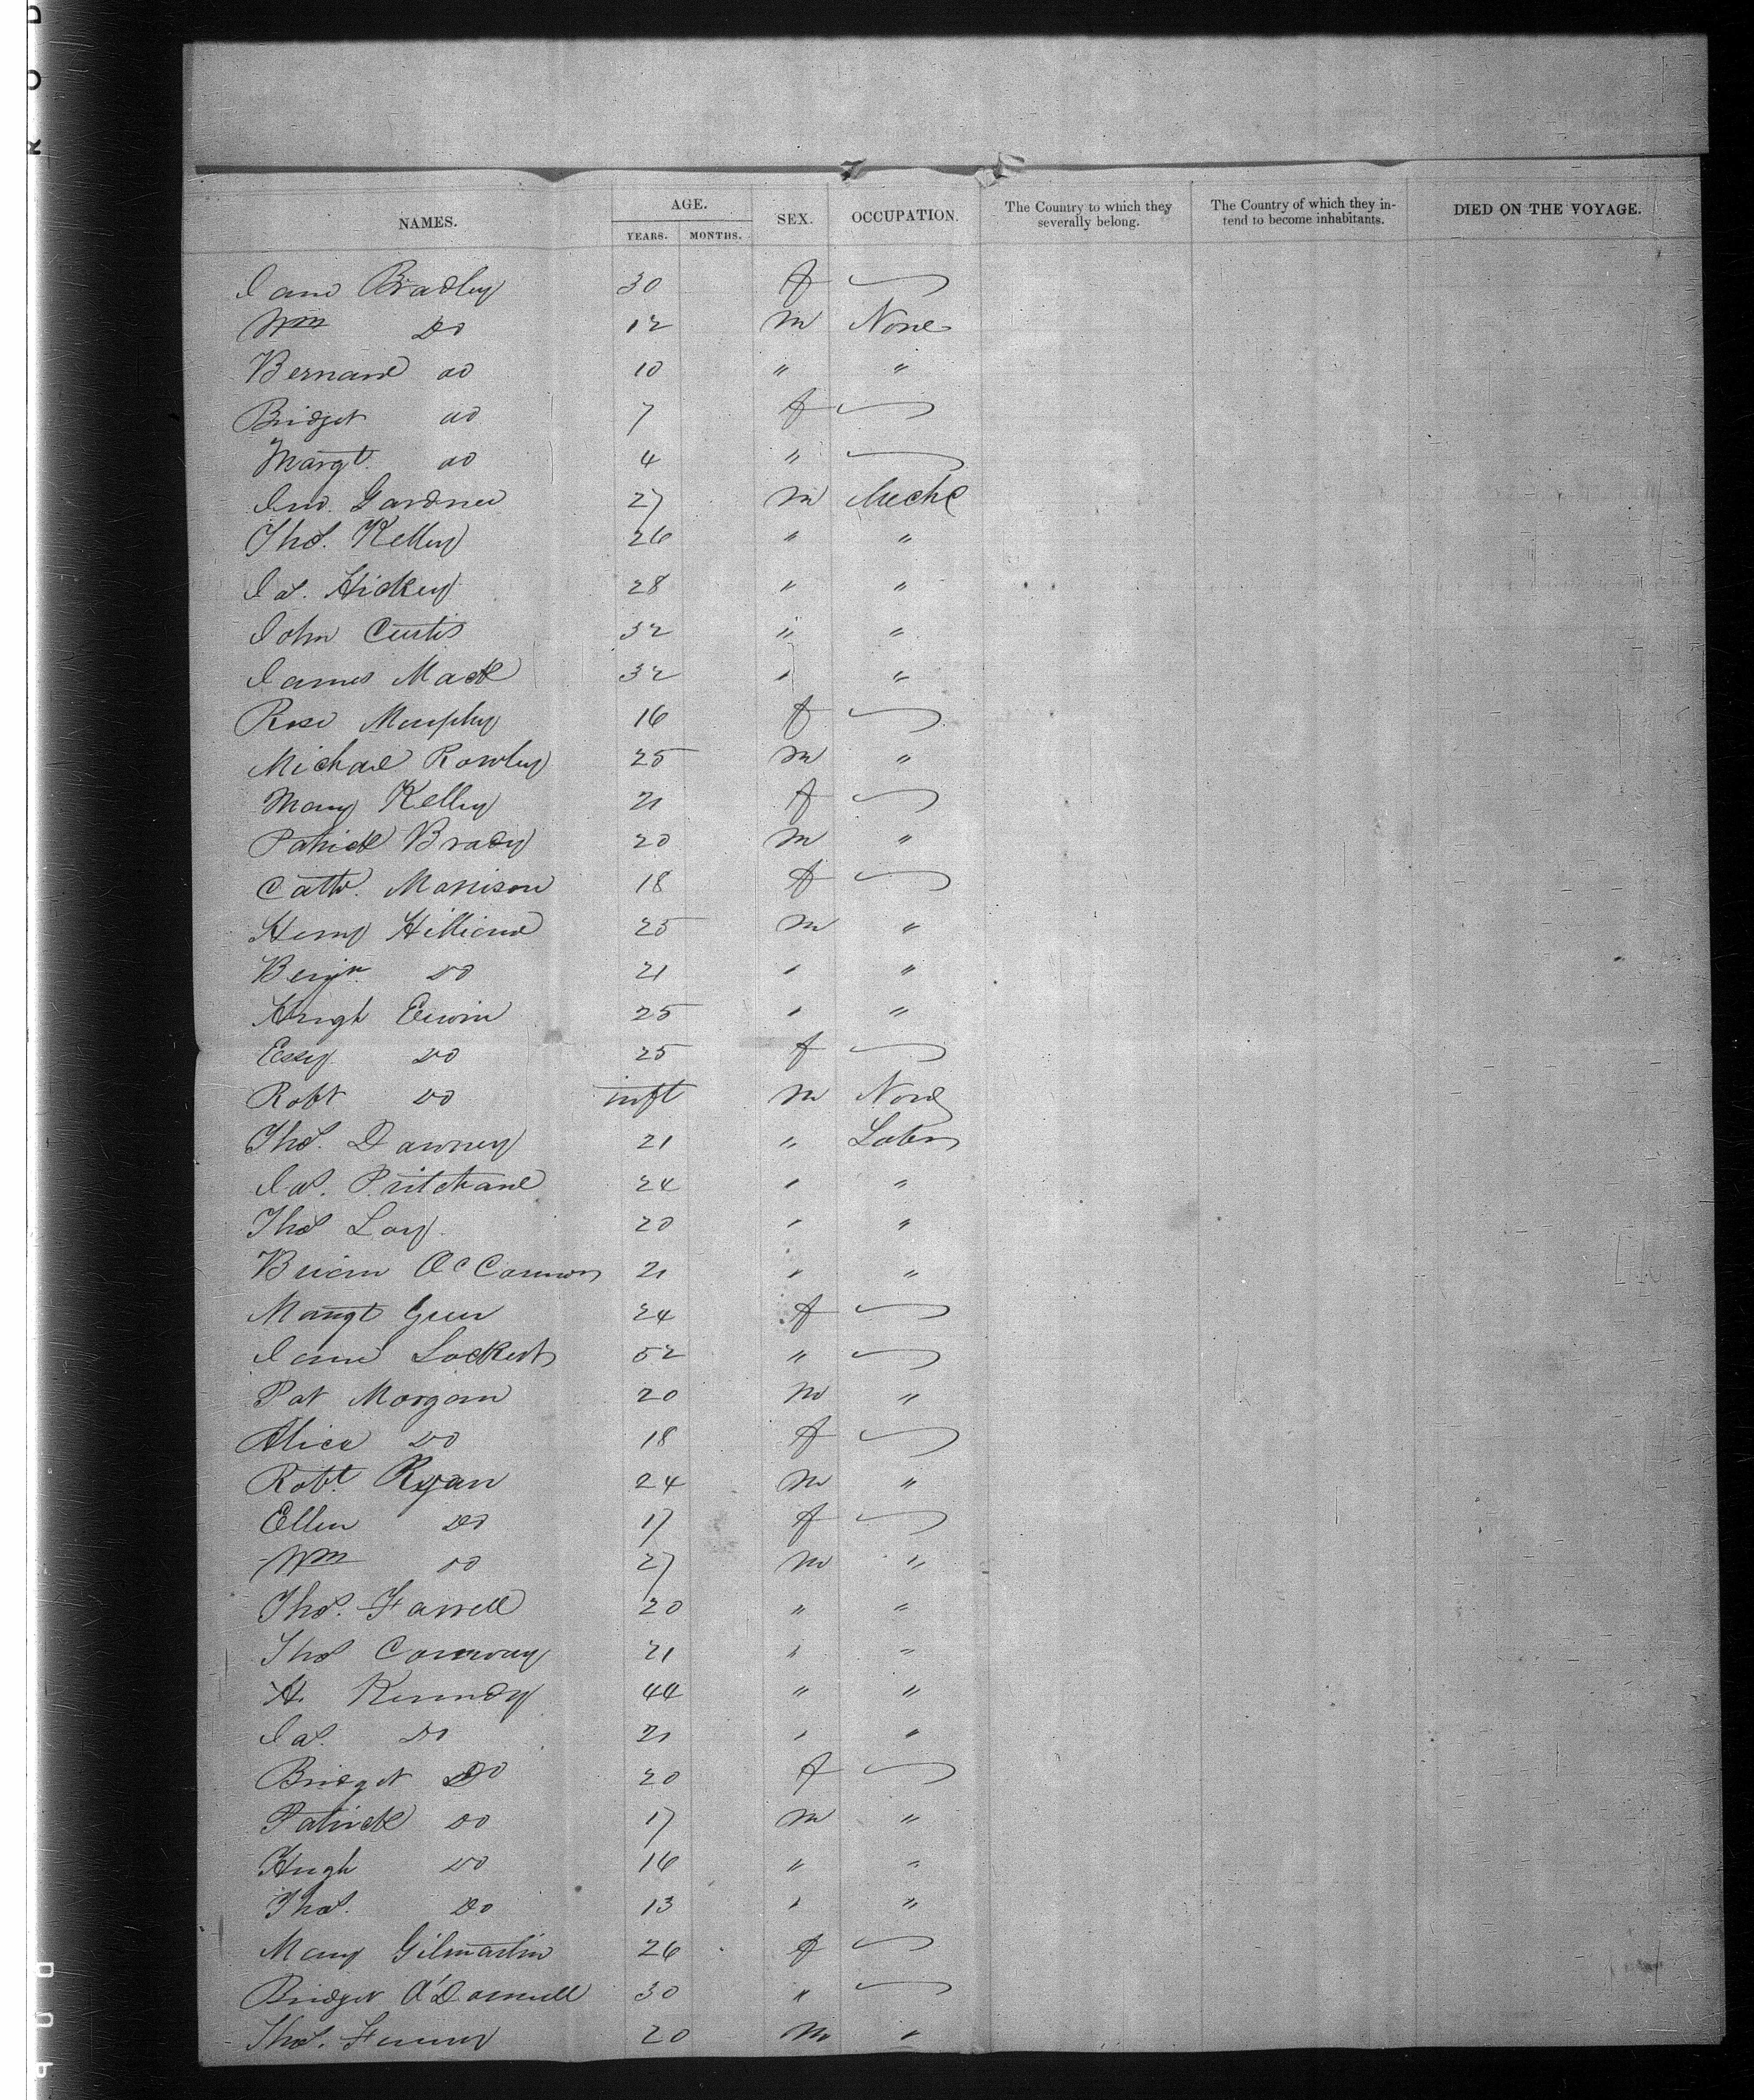 NAMES. AGE. SEX. OCCUPATION. The Country to which they severally belong. The Country of which they intend to become inhabitants. DIED ON THE VOYAGE.
YEARS. MONTHS.
Jane Bradley 30 f
Wm Do 12 m None
Bernard do 10 " "
Bridget do 7 f
Margt. do 4 "
Jno. Gardner 27 m Mechc
Thos. Kelley 26 " "
Jas. Hickey 28 " "
John Curtis 32 " "
James Mack 32 " "
Rose Murphy 16 f
Michael Rowley 25 m "
Mary Kelley 21 f
Patrick Brady 20 m "
Cath. Morrison 18 f
Henry Hilliard 25 m "
Benjn. Do 21 " "
Hugh Erwin 25 " "
Essy Do 25 f
Robt Do inft m None
Thos. Dawney 21 " Labr
Jas. Pritchard 24 " "
Thos Loy 20 " "
Brian 21 " "
Margt Geer 24 f
Jane Lockert 52 "
Pat Morgan 20 m "
Alice Do 18 f
Robt. Ryan 24 m "
Ellen Do 17 f
Wm Do 27 m "
Thos. Farrell 20 " "
Thos Conway 21 " "
H. Kennedy 44 " "
Jas. Do 21 " "
Bridget Do 20 f
Patrick Do 17 m "
Hugh Do 16 " "
Thos. Do 13 " "
Mary Gilmartin 26 f
Bridget O'Donnell 30 "
Thos. 20 m "